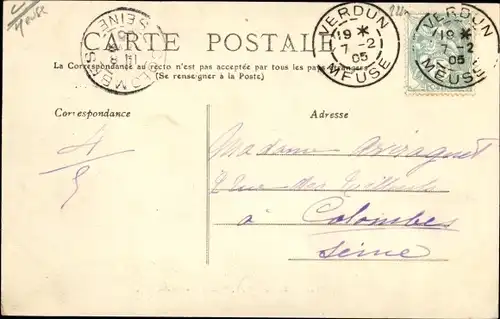 CARTE POSTALE
La Correspondance au recto n'est pas acceptée par tous les pays étrangers
(Se renseigner à la Poste)
VERDUN
19 *
7 -2
05
MEUSE
VERDUN
19 *
7 -2
05
MEUSE
SEINE
Correspondance
Adresse
4
5
Madame
Rue des
à Colombes
Seine